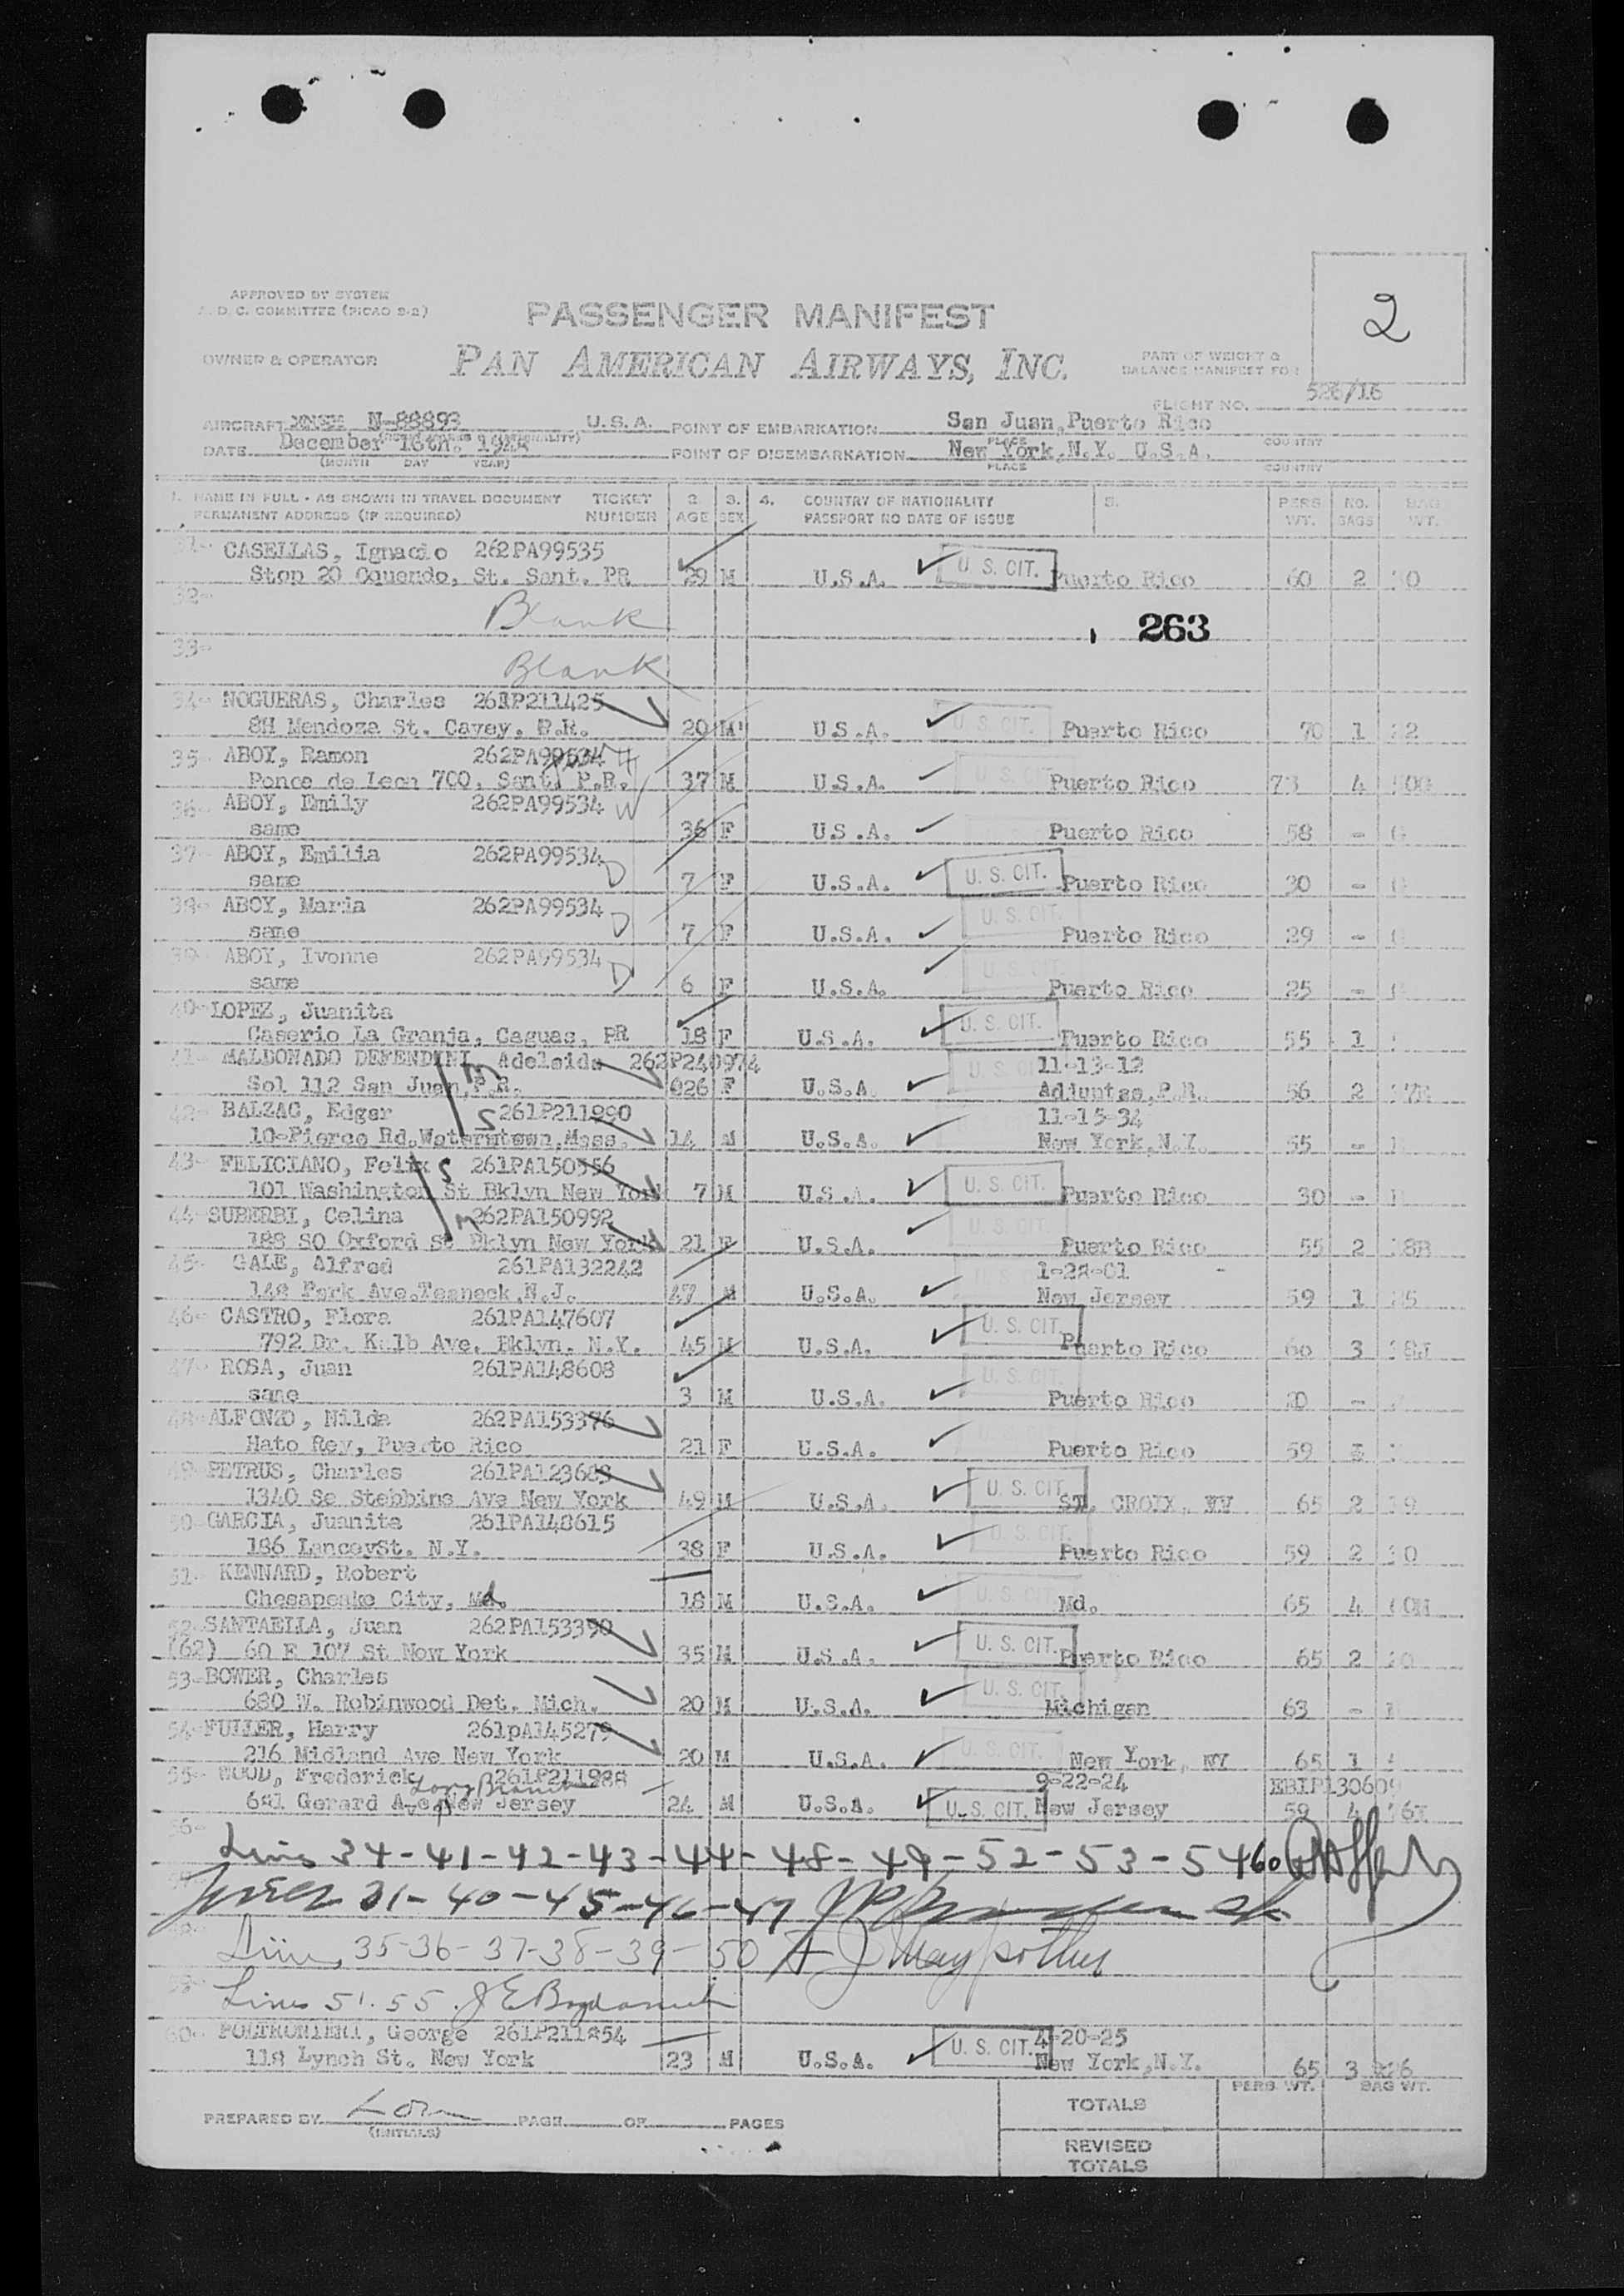 APPROVED BY SYSTEM
A. D. C. COMMITTEE (PICAO 9-2)
PASSENGER MANIFEST
2
OWNER & OPERATOR
PAN AMERICAN AIRWAYS, INC.
PART OF WEIGHT &
BALANCE MANIFEST FOR
FLIGHT NO. 526/16
AIRCRAFT N-88893 U.S.A. POINT OF EMBARKATION San Juan, Puerto Rico
PLACE COUNTRY
DATE December 16th. 1948 POINT OF DISEMBARKATION New York, N.Y. U.S.A.
(MONTH DAY YEAR) PLACE COUNTRY
1. NAME IN FULL - AS SHOWN IN TRAVEL DOCUMENT TICKET 2. 3. 4. COUNTRY OF NATIONALITY 5. PERS NO. BAG
PERMANENT ADDRESS (IF REQUIRED) NUMBER AGE SEX PASSPORT NO DATE OF ISSUE WT. BAGS WT.
31- CASELLAS, Ignacio 262PA99535
Stop 20 Oquendo, St. Sant. PR 29 M U.S.A. U. S. CIT. Puerto Rico 60 2
32- Blank 263
33- Blank
34- NOGUERAS, Charles 261P211425
8H Mendoza St. Cavey. P.R. 20 M U.S.A. U. S. CIT. Puerto Rico 70 1
35- ABOY, Ramon 262PA99534 H
Ponce de Leon 700, Sant. P.R. 37 M U.S.A. U. S. CIT. Puerto Rico 73 4
36- ABOY, Emily 262PA99534 W
same 36 F U.S.A. Puerto Rico 58 -
37- ABOY, Emilia 262PA99534 D
same 7 F U.S.A. U. S. CIT. Puerto Rico 30 -
38- ABOY, Maria 262PA99534 D
same 7 F U.S.A. U. S. CIT. Puerto Rico 29 -
39- ABOY, Ivonne 262PA99534 D
same 6 F U.S.A. U. S. CIT. Puerto Rico 25 -
40- LOPEZ, Juanita
Caserio La Granja, Caguas, PR 18 F U.S.A. U. S. CIT. Puerto Rico 55 1
41- MALDONADO DEFENDINI, Adelaida 262P240974 11-13-12
Sol 112 San Juan, P.R. m 26 F U.S.A. U. S. CIT. Adjuntas, P.R. 56 2
42- BALZAC, Edger S 261P211990 11-15-34
10-Pierce Rd. Watermtown, Mass. 14 M U.S.A. New York, N.Y. 55 -
43- FELICIANO, Felix S 261PA150556
101 Washington St Bklyn New York 7 M U.S.A. U. S. CIT. Puerto Rico 30 -
44- SUBERBI, Celina m 262PA150992
188 SO Oxford St Bklyn New York 21 F U.S.A. U. S. CIT. Puerto Rico 55 2
45- GALE, Alfred 261PA132242 1-28-01
148 Park Ave. Teaneck, N.J. 47 M U.S.A. New Jersey 59 1
46- CASTRO, Flora 261PA147607
792 Dr. Kalb Ave. Bklyn. N.Y. 45 M U.S.A. U. S. CIT. Puerto Rico 60 3
47- ROSA, Juan 261PA148608
same 3 M U.S.A. U. S. CIT. Puerto Rico 20 -
48- ALFONZO, Nilda 262PA153376
Hato Rey, Puerto Rico 21 F U.S.A. Puerto Rico 59
49- PETRUS, Charles 261PA123683
1340 Se Stebbins Ave New York 49 M U.S.A. U. S. CIT. ST. CROIX, 65 2
50- GARCIA, Juanita 261PA148615
186 LanceySt. N.Y. 38 F U.S.A. U. S. CIT. Puerto Rico 59 2
51- KENNARD, Robert
Chesapeake City, Md. 18 M U.S.A. U. S. CIT. Md. 65 4
52- SANTAELLA, Juan 262PA153390
(62) 60 E 107 St New York 35 M U.S.A. U. S. CIT. Puerto Rico 65 2
53- BOWER, Charles
680 W. Robinwood Det. Mich. 20 M U.S.A. U. S. CIT. Michigan 63 -
54- FULLER, Harry 261pA145279
216 Midland Ave New York 20 M U.S.A. U. S. CIT. New York, NY 65 1
55- WOOD, Frederick 261P211988 9-22-24
Long Branch
681 Gerard Ave. New Jersey 24 M U.S.A. U. S. CIT. New Jersey 59 4
56-
Lines 34-41-42-43-44-48-49-52-53-54 60
Lines 31-40-45-46-47
Lines 35-36-37-38-39-50
Lines 51. 55.
60- POLTRONIERI, George 261P211854 4-20-25
118 Lynch St. New York 23 M U.S.A. U. S. CIT. New York, N.Y. 65 3
PREPARED BY PAGE OF PAGES
(INITIALS)
PERS WT. BAG WT.
TOTALS
REVISED
TOTALS